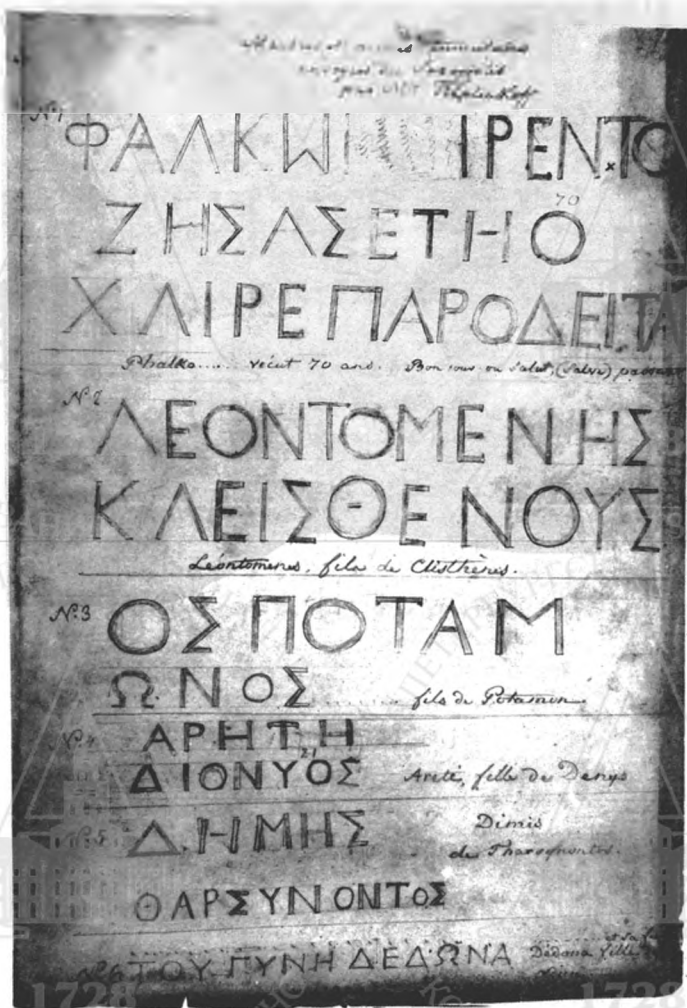 Nº 1
ΦΑΛΚΩΙ ΙΡΕΝΤΟ
70
ΖΗΣΑΣ ΕΤΗ Ο
ΧΑΙΡΕ ΠΑΡΟΔΕΙΤΑ
Phalko..... vécut 70 ans. Bon jour ou Salut, (Salve)
Nº 2
ΛΕΟΝΤΟΜΕΝΗΣ
ΚΛΕΙΣΘΕΝΟΥΣ
Léontomenes, fils de Clisthènes.
Nº 3
ΟΣ ΠΟΤΑΜ
ΩΝΟΣ fils de Potamon
Nº 4
ΑΡΗΤΗ
ΔΙΟΝΥΟΣ Areté, fille de Denys
Nº 5
ΔΗΜΗΣ Dimis
de
ΘΑΡΣΥΝΟΝΤΟΣ
Nº 6
ΤΟΥ ΓΥΝΗ ΔΕΔΩΝΑ Dedona fille
1728
1728